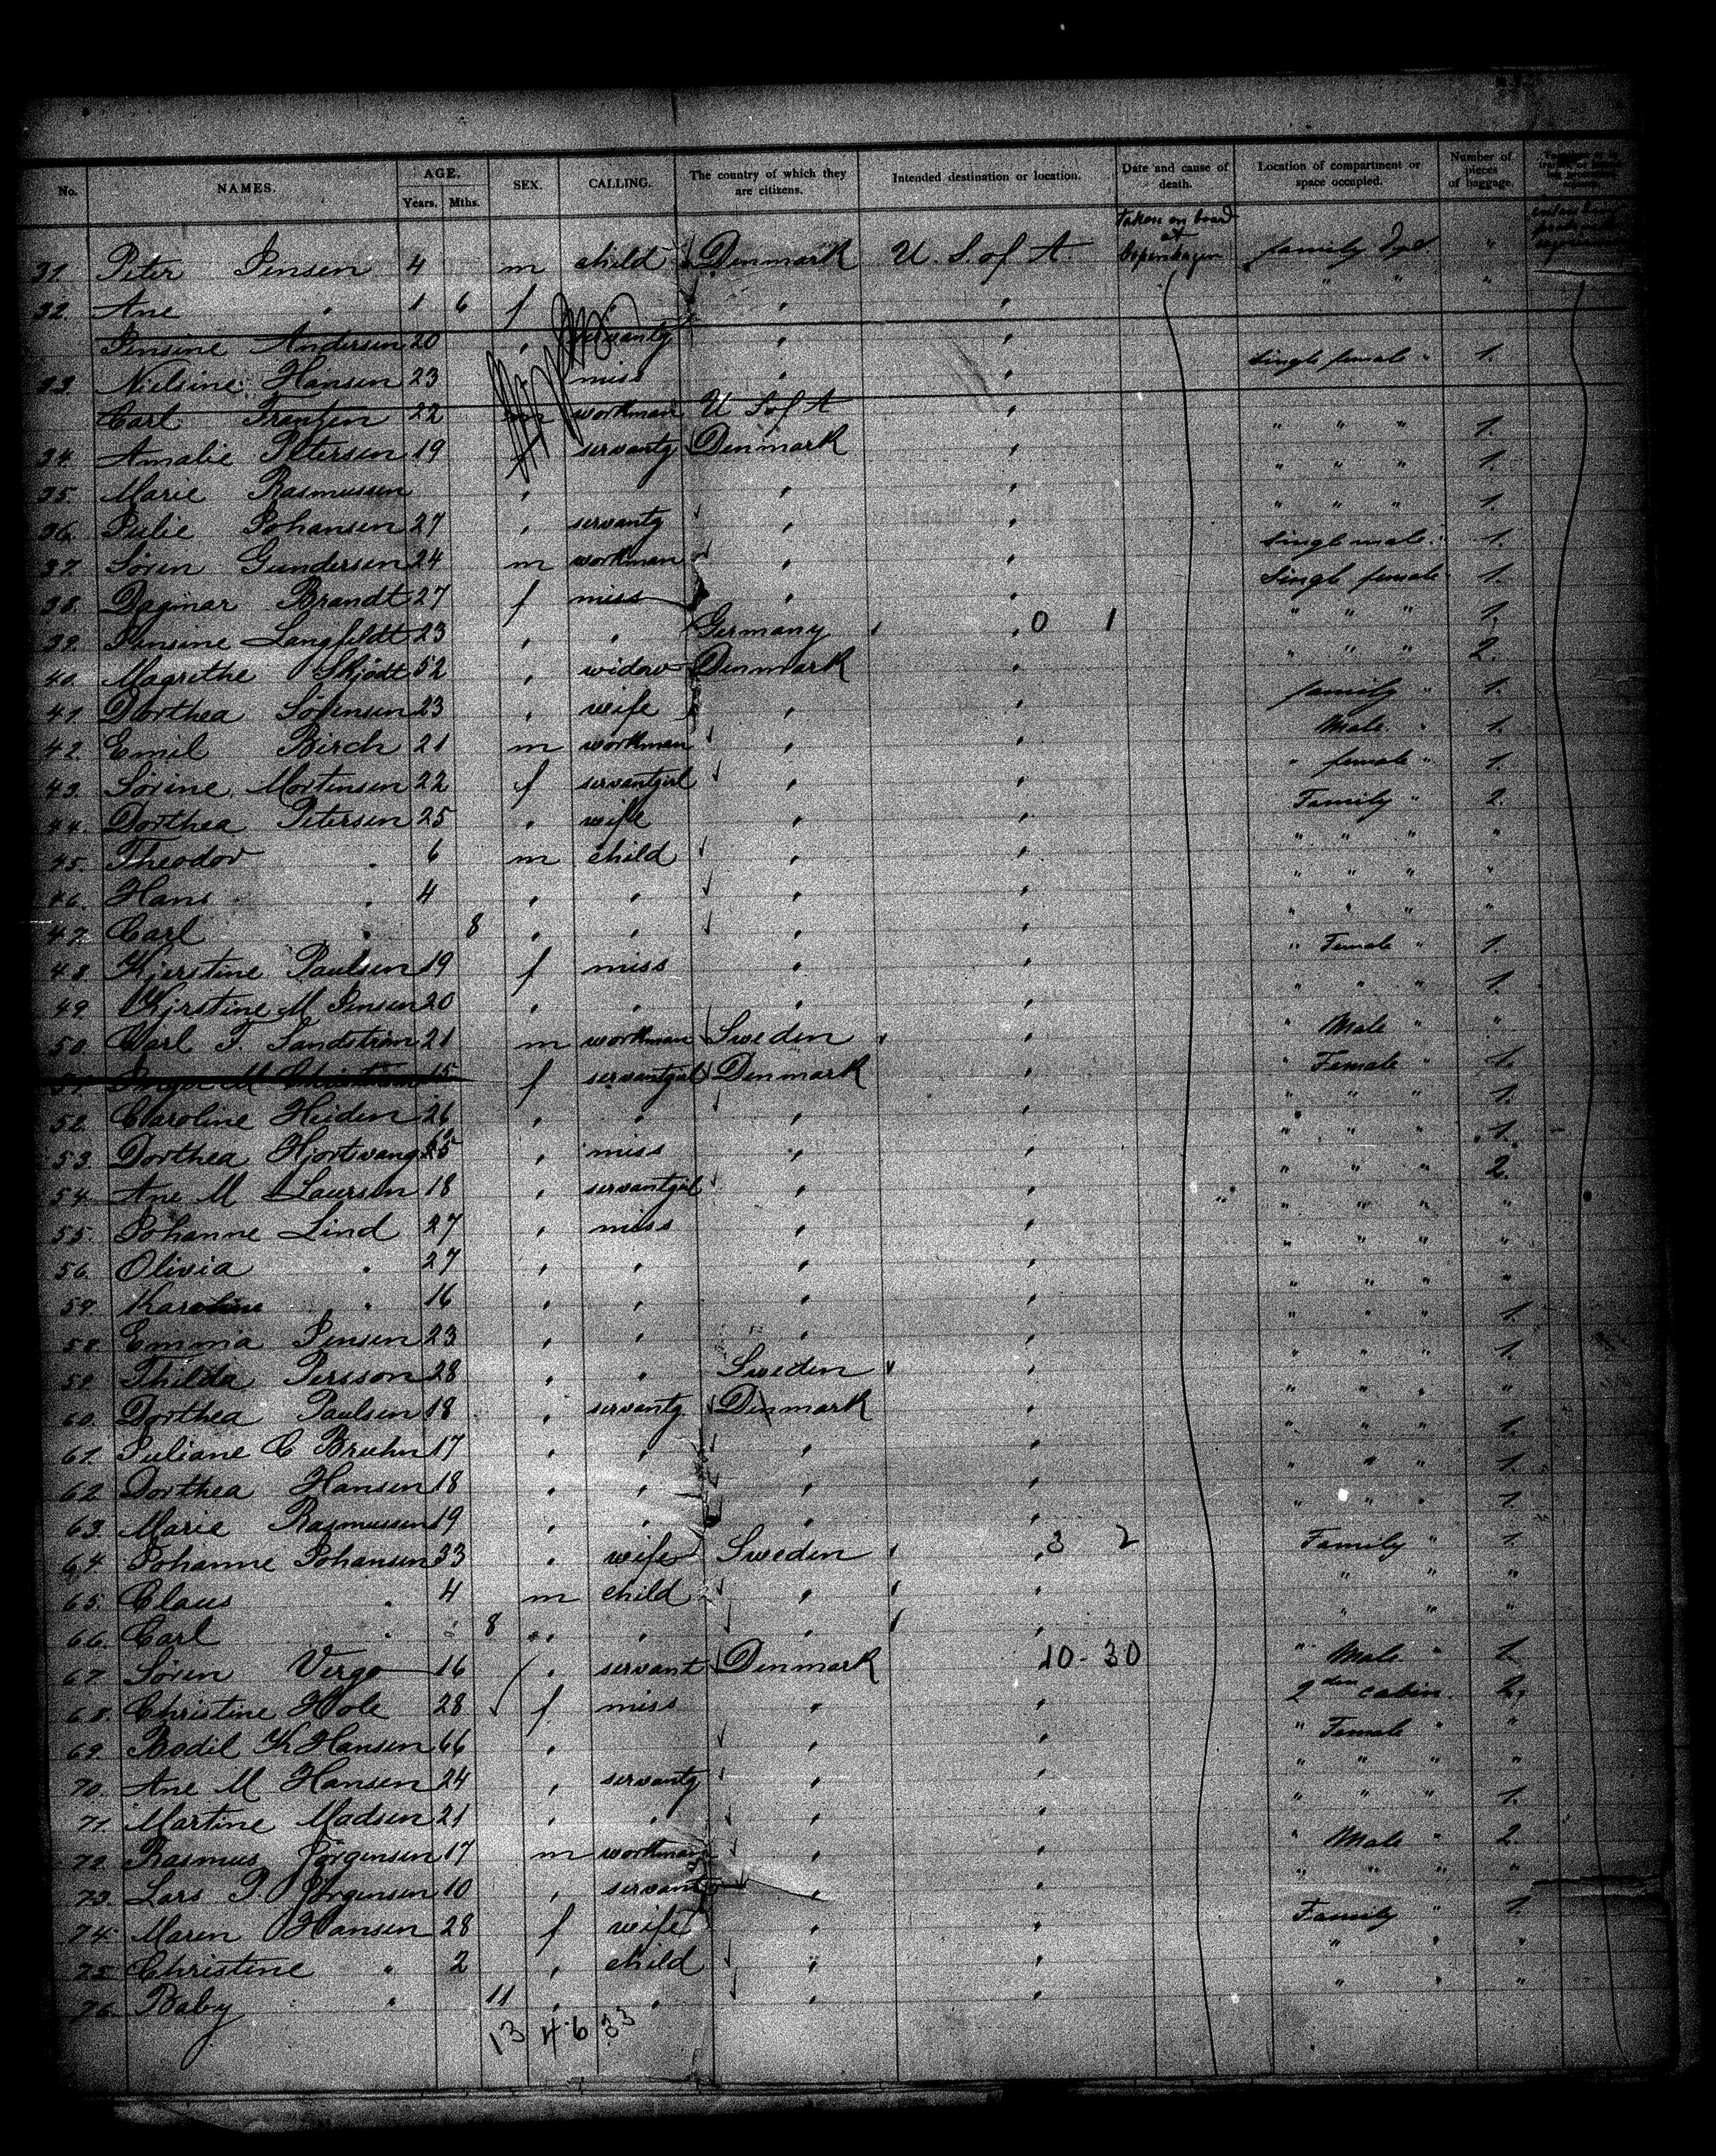 No. NAMES. AGE. Years. Mths. SEX. CALLING. The country of which they are citizens. Intended destination or location. Date and cause of death. Location of compartment or space occupied. Number of pieces of baggage.
Taken on board at Copenhagen
31. Peter Jensen 4 m child Denmark U. S. of A. family "
32. Ane " 1 6 f " " " " "
Jensine Andersen 20 " servantg " "
33. Nielsine Hansen 23 miss " " single female " 1.
Carl Frantzen 22 m workman U S of A "
34. Amalie Petersen 19 f servantg Denmark " " " " 1.
35. Marie Rasmussen " " " " " " 1.
36. Julie Johansen 27 " servantg " " " " " 1.
37. Sören Gundersen 24 m workman " " single male " 1.
38. Dagmar Brandt 27 f miss " " Single female 1.
39. Jensine Langfeldt 23 " " Germany " 0 1 " " " 1.
40. Magrethe Skjödt 52 " widow Denmark " " " " 2.
41. Dorthea Sörensen 23 " wife " " family " 1.
42. Emil Birch 21 m workman " " Male " 1.
43. Sörine Mortensen 22 f servantgirl " " " female " 1.
44. Dorthea Petersen 25 " wife " " Family " 2.
45. Theodor " 6 m child " " " " " "
46. Hans " 4 " " " " " " " "
47. Carl " 8 " " " " " " " "
48. Kjerstine Paulsen 19 f miss " " " Female " 1.
49. Kjrstine M Jensen 20 " " " " " " " 1.
50. Carl F. Sandström 21 m workman Sweden " " Male " "
51. 15 f servantgirl Denmark " " Female " 1.
52. Caroline Heiden 26 " " " " " " " 1.
53. Dorthea Hjortvang " miss " " " " " 1.
54. Ane M Laursen 18 " servantgirl " " " " " 2.
55. Johanne Lind 27 " miss " " " " " "
56. Olivia " 27 " " " " " " " "
57. Karoline " 16 " " " " " " " "
58. Emma Jensen 23 " " " " " " " 1.
59. Thilda Persson 28 " " Sweden " " " " 1.
60. Dorthea Paulsen 18 " servantg Denmark " " " " "
61. Juliane C Bruhn 17 " " " " " " " 1.
62. Dorthea Hansen 18 " " " " " " " 1.
63. Marie Rasmussen 19 " " " " " " " 1.
64. Johanne Johansen 33 " wife Sweden " 3 2 Family " 1.
65. Claus " 4 m child " " " " "
66. Carl " 8 " " " " " " "
67. Sören Virgo 16 " servant Denmark 10 - 30 " Male " 1.
68. Christine Hole 28 f miss " " 2den cabin. 2.
69. Bodil K Hansen 66 " " " " Female " "
70. Ane M Hansen 24 " servantg " " " " " "
71. Martine Madsen 21 " " " " " " " 1.
72. Rasmus Jörgensen 17 m workman " " " Male " 2.
73. Lars P. Jörgensen 10 " servant " " " " " "
74. Maren Hansen 28 f wife " " Family " 1.
75. Christine " 2 " child " " " " "
76. Baby " 11 " " " " " " "
13 46 33